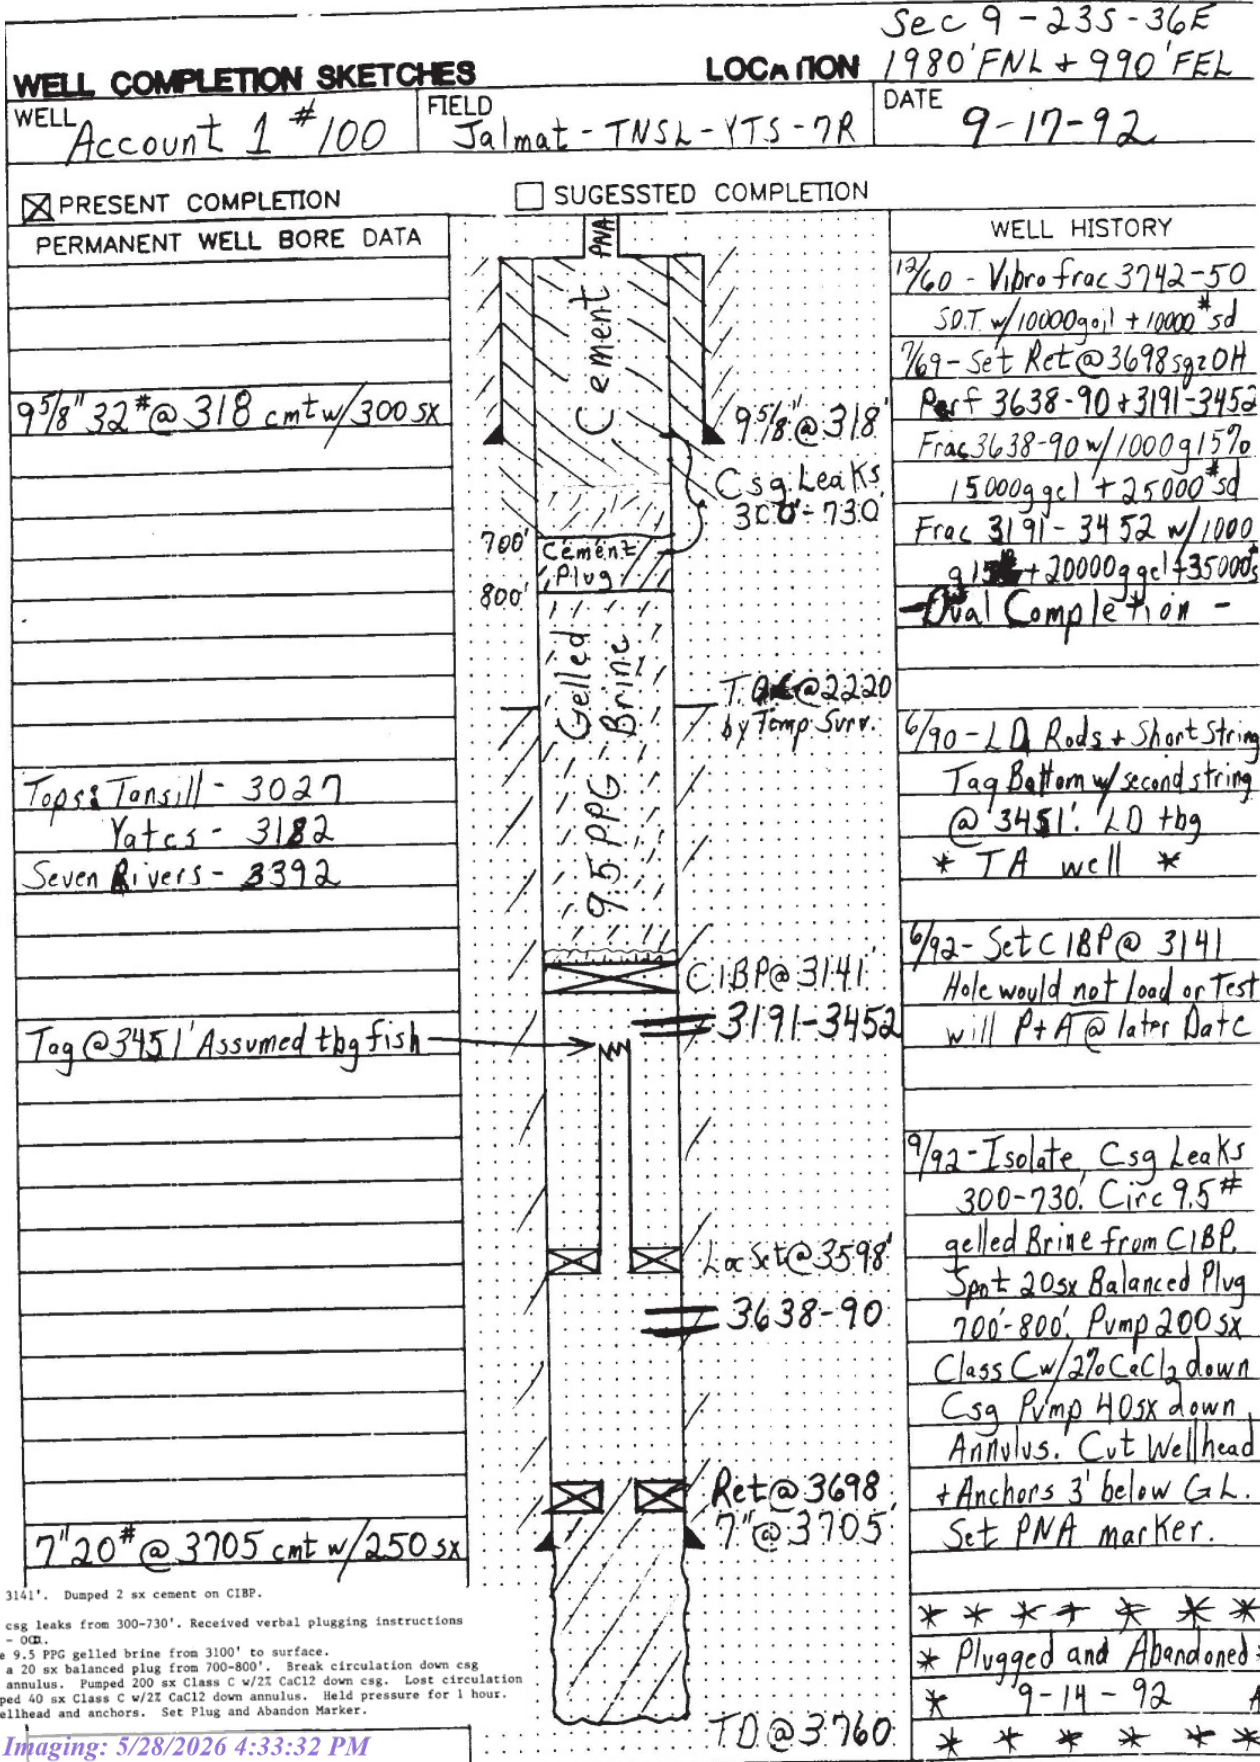 Sec 9 - 23S - 36E
WELL COMPLETION SKETCHES LOCATION 1980' FNL + 990' FEL
WELL Account 1 #100 FIELD Jalmat - TNSL - YTS - 7R DATE 9-17-92
PRESENT COMPLETION SUGESSTED COMPLETION
PERMANENT WELL BORE DATA
9 5/8" 32# @ 318 cmt w/300 sx
Tops: Tansill - 3027
Yates - 3182
Seven Rivers - 3392
Tag @ 3451' Assumed tbg fish
7" 20# @ 3705 cmt w/250 sx
PNA
Cement
9 5/8" @ 318'
Csg Leaks
300'-730'
700'
Cement
Plug
800'
Gelled
Brine
9.5 PPG
@ 2220
by Temp Surv.
CIBP @ 3141'
3191-3452
Loc Set @ 3598'
3638-90
Ret @ 3698
7" @ 3705
TD @ 3760
WELL HISTORY
12/60 - Vibrofrac 3742-50
S.D.T. w/10000 goil + 10000# sd
7/69 - Set Ret @ 3698 sqz OH
Perf 3638-90 + 3191-3452
Frac 3638-90 w/1000 g 15%
15000 g gel + 25000# sd
Frac 3191 - 3452 w/1000
+ 20000 g gel + 35000#s
- Dual Completion -
6/90 - LD Rods + Short String
Tag Bottom w/ second string
@ 3451'. LD tbg
* TA well *
6/92 - Set CIBP @ 3141
Hole would not load or Test
will P+A @ later Date
9/92 - Isolate Csg Leaks
300-730'. Circ 9.5#
gelled Brine from CIBP.
Spot 20sx Balanced Plug
700'-800'. Pump 200 sx
Class C w/2% CaCl2 down
Csg Pump 40sx down
Annulus. Cut Wellhead
+ Anchors 3' below G.L.
Set PNA marker.
* * * * * * *
* Plugged and Abandoned *
* 9-14-92
* * * * * *
3141'. Dumped 2 sx cement on CIBP.
csg leaks from 300-730'. Received verbal plugging instructions
- OCD.
e 9.5 PPG gelled brine from 3100' to surface.
a 20 sx balanced plug from 700-800'. Break circulation down csg
annulus. Pumped 200 sx Class C w/2% CaCl2 down csg. Lost circulation
ped 40 sx Class C w/2% CaCl2 down annulus. Held pressure for 1 hour.
ellhead and anchors. Set Plug and Abandon Marker.
Imaging: 5/28/2026 4:33:32 PM